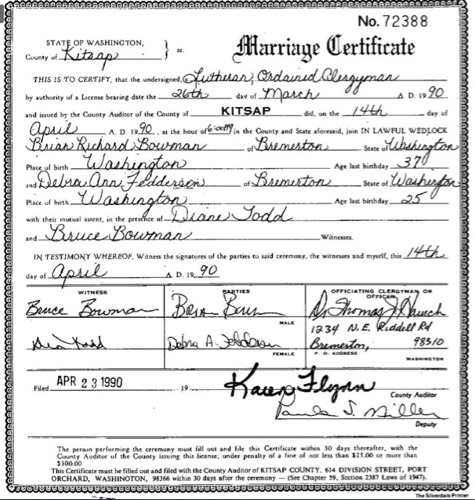 No. 72388
STATE OF WASHINGTON,
County of Kitsap } ss.
Marriage Certificate
THIS IS TO CERTIFY, that the undersigned, a Lutheran, Ordained Clergyman
by authority of a License bearing date the 26th day of March A. D. 19 90
and issued by the County Auditor of the County of KITSAP did, on the 14th day of
April A. D. 19 90, at the hour of 6:00 PM in the County and State aforesaid, join IN LAWFUL WEDLOCK
Brian Richard Bowman of Bremerton State of Washington
Place of birth Washington Age last birthday 37
and Debra Ann Fedderson of Bremerton State of Washington
Place of birth Washington Age last birthday 25
with their mutual assent, in the presence of Diane Todd
and Bruce Bowman Witnesses.
IN TESTIMONY WHEREOF, Witness the signatures of the parties to said ceremony, the witnesses and myself, this 14th
day of April A. D. 19 90
WITNESS PARTIES OFFICIATING CLERGYMAN OR OFFICER
Bruce Bowman Dr Thomas J
MALE 1234 N.E. Riddell Rd
Todd Debra A. Bremerton, 98310
FEMALE P. O. ADDRESS WASHINGTON
Filed APR 23 1990 19 Karen Flynn
County Auditor
Paula S. Miller
Deputy
The person performing the ceremony must fill out and file this Certificate within 30 days thereafter, with the
County Auditor of the County issuing this license; under penalty of a fine of not less than $21.00 or more than
$300.00
This Certificate must be filled out and filed with the County Auditor of KITSAP COUNTY, 614 DIVISION STREET, PORT
ORCHARD, WASHINGTON, 98366 within 30 days after the ceremony — (See Chapter 59, Section 2387 Laws of 1947).
The Silverdale Printer